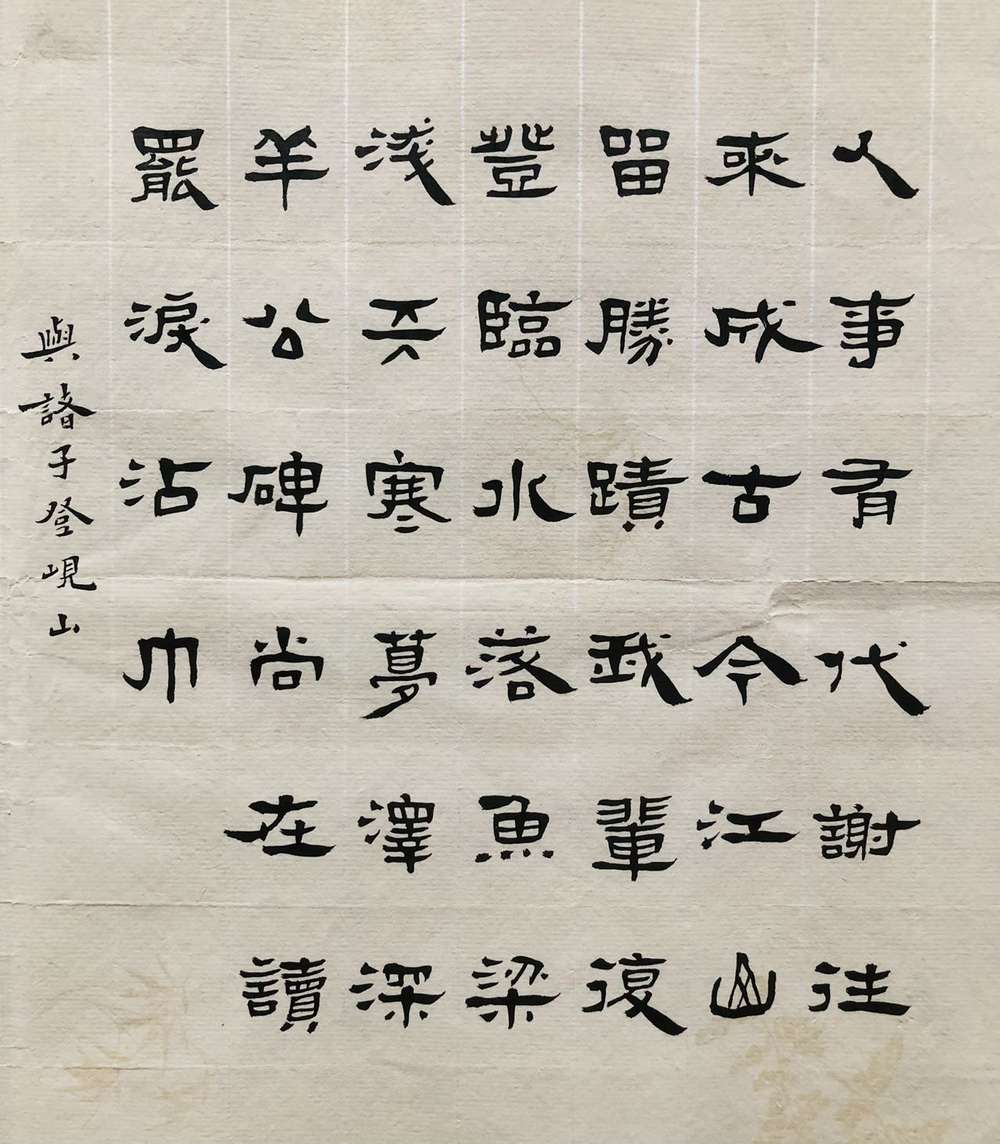 人事有代謝往
來成古今江山
留勝蹟我輩復
登臨水落魚梁
淺天寒夢澤深
羊公碑尚在讀
罷淚沾巾
與諸子登峴山